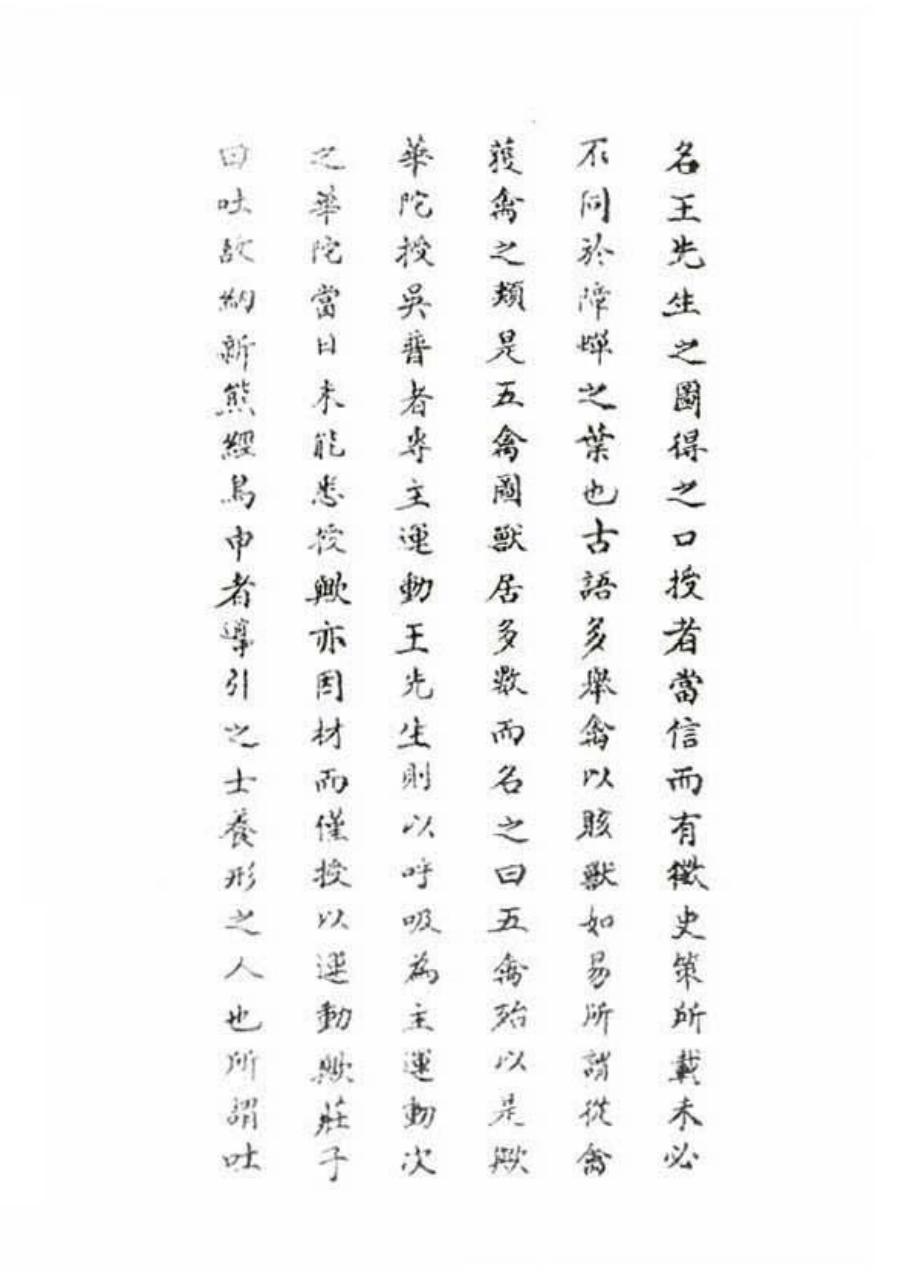 名王先生之圖得之口授者當信而有徵史策所載未必
不同於障蟬之葉也古語多舉禽以賅獸如易所謂從禽
獲禽之類是五禽圖獸居多數而名之曰五禽殆以是歟
華陀授吳普者專主運動王先生則以呼吸為主運動次
之華陀當日未能悉授歟亦因材而僅授以運動歟莊子
曰吐故納新熊經鳥申者導引之士養形之人也所謂吐